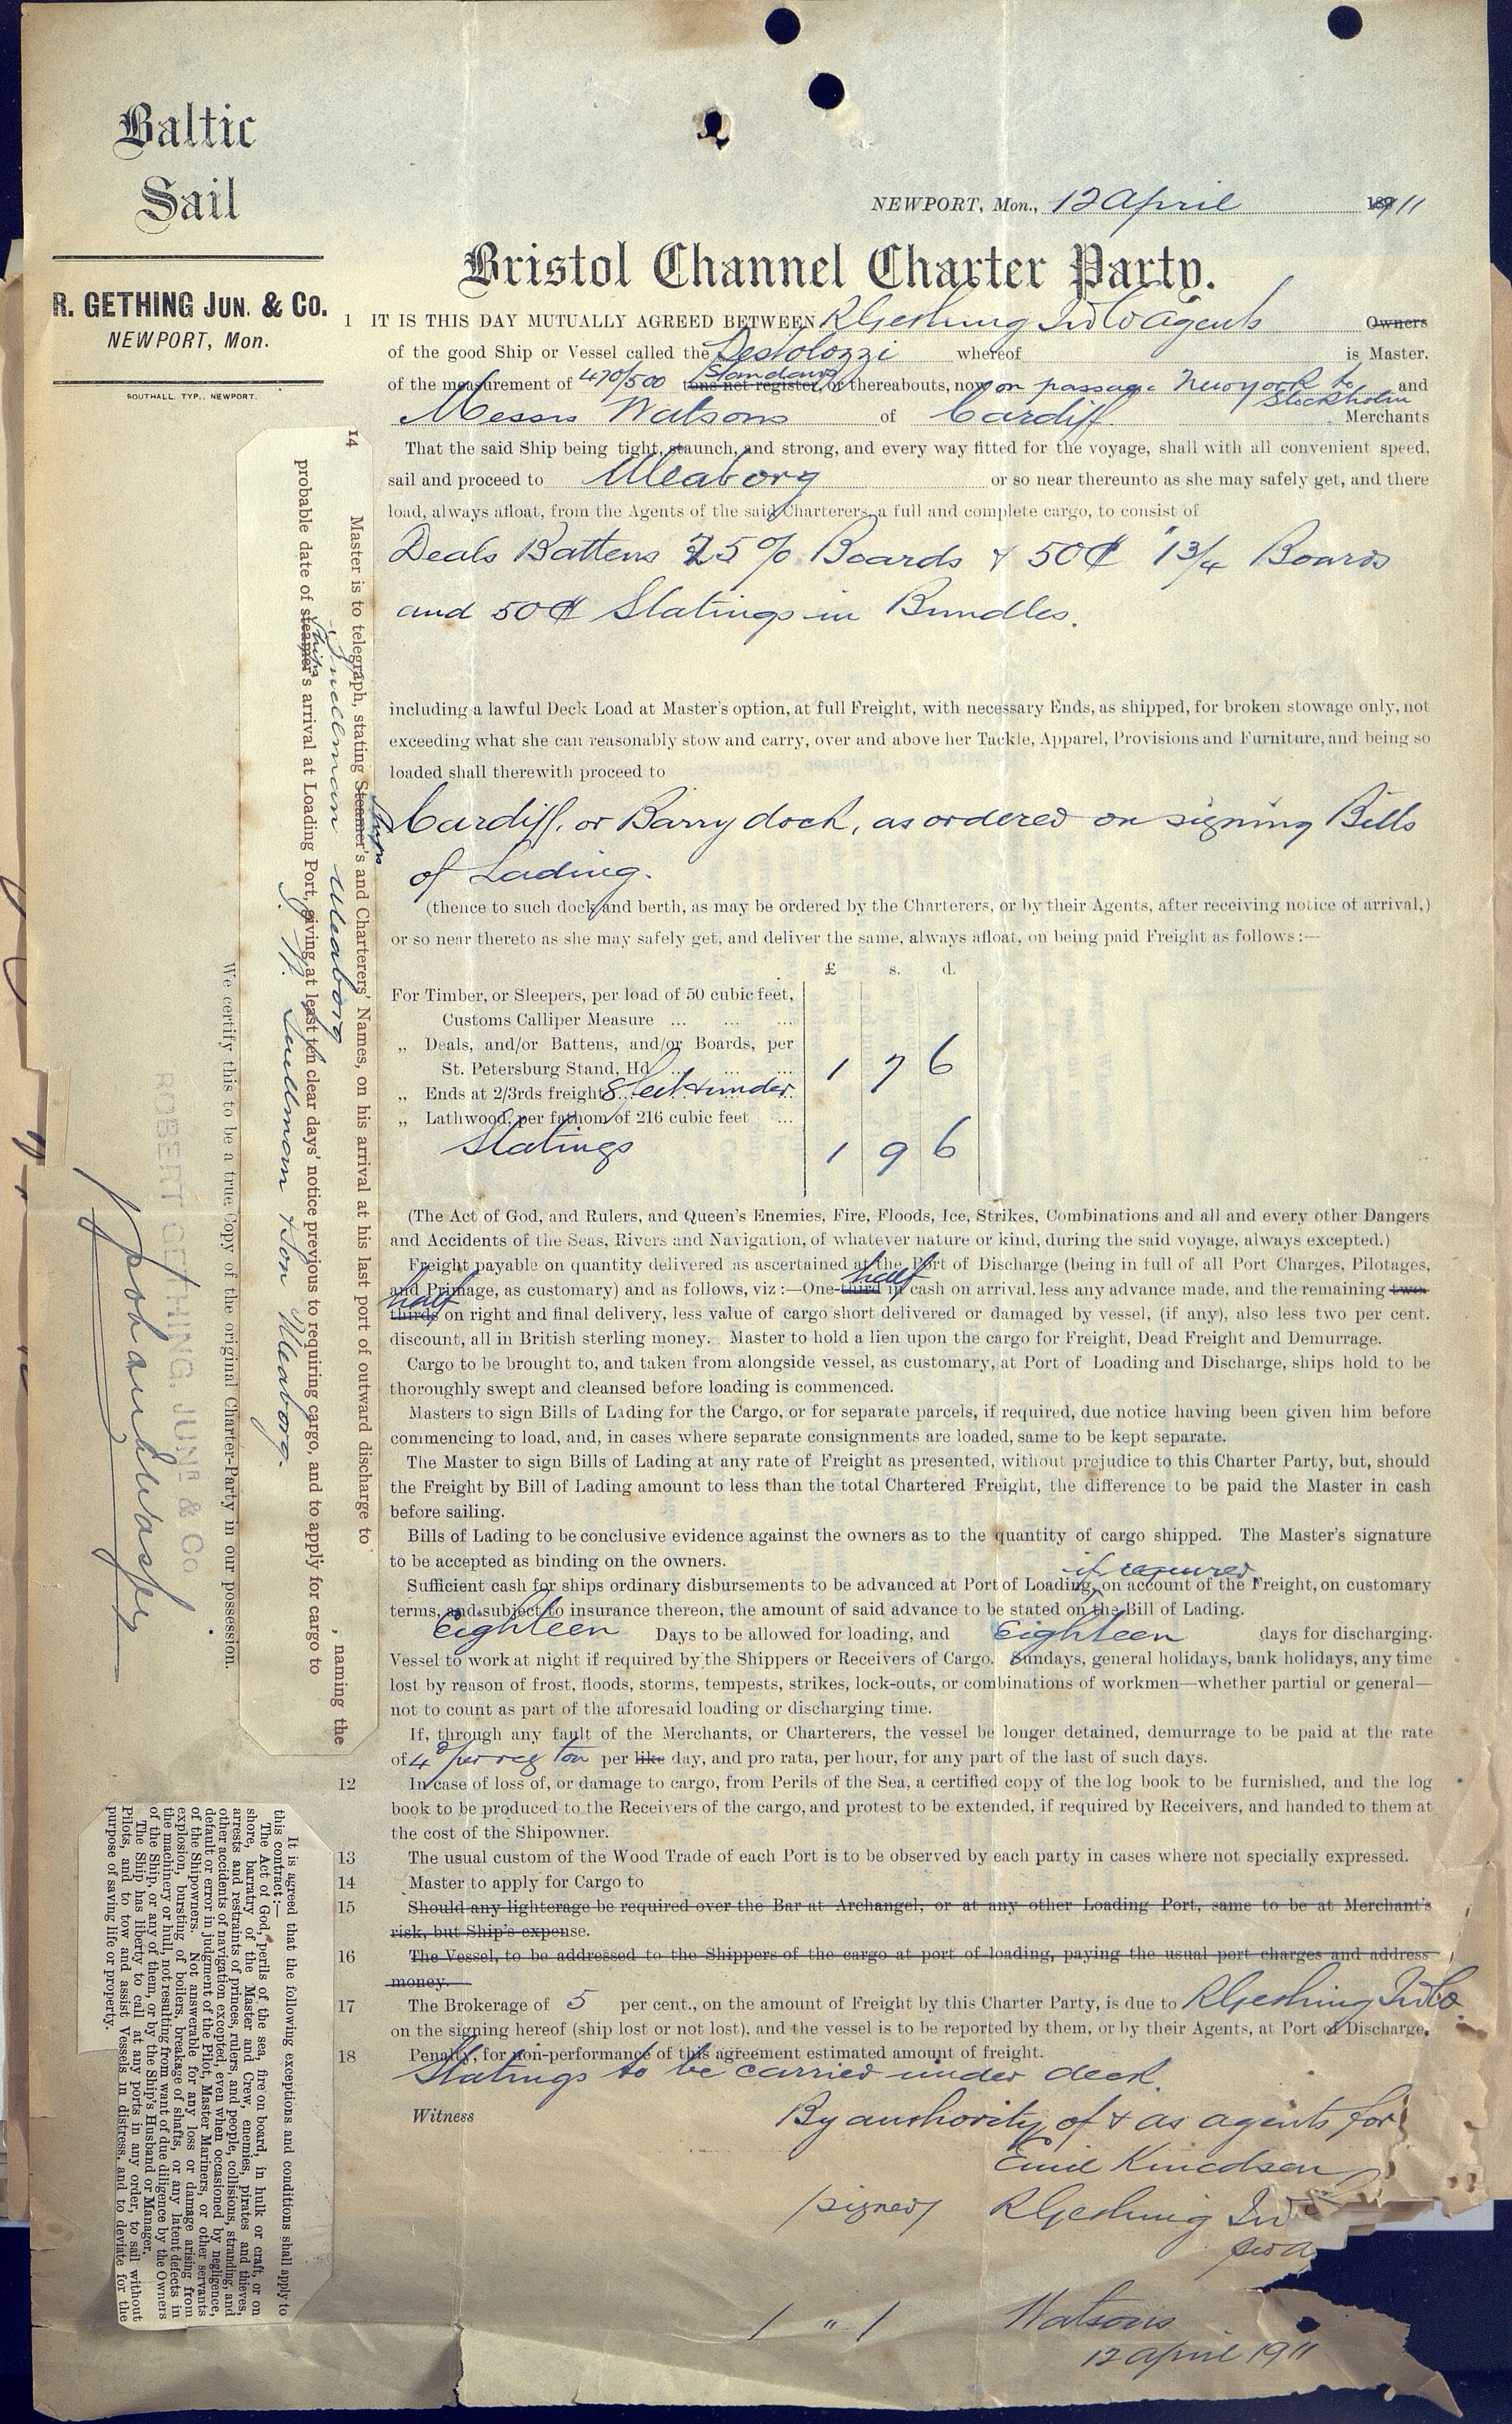 Baltic
Sail
R. GETHING JUN. & CO.
NEWPORT, Mon.
SOUTHALL, TYP., NEWPORT.
NEWPORT, Mon., 12 April 1911
Bristol Channel Charter Party.
1 IT IS THIS DAY MUTUALLY AGREED BETWEEN R Gething Jr & Co agents Owners
of the good Ship or Vessel called the Pestolozzi whereof is Master.
of the measurement of 470/500 tons net register Standards or thereabouts, now on passage Newyork to Stockholm and
Messrs Watsons of Cardiff. Merchants
That the said Ship being tight, staunch, and strong, and every way fitted for the voyage, shall with all convenient speed,
sail and proceed to Uleaborg or so near thereunto as she may safely get, and there
load, always afloat, from the Agents of the said Charterers, a full and complete cargo, to consist of
Deals Battens 25% Boards & 50 1 3/4 Boards
and 50 Slatings in Bundles.
including a lawful Deck Load at Master's option, at full Freight, with necessary Ends, as shipped, for broken stowage only, not
exceeding what she can reasonably stow and carry, over and above her Tackle, Apparel, Provisions and Furniture, and being so
loaded shall therewith proceed to
Cardiff, or Barry dock, as ordered on signing Bills
of Lading.
(thence to such dock and berth, as may be ordered by the Charterers, or by their Agents, after receiving notice of arrival,)
or so near thereto as she may safely get, and deliver the same, always afloat, on being paid Freight as follows:—
£ s. d.
For Timber, or Sleepers, per load of 50 cubic feet,
Customs Calliper Measure ... ... ...
„ Deals, and/or Battens, and/or Boards, per
St. Petersburg Stand, Hd ... ... ... 1 7 6
„ Ends at 2/3rds freight 8 feet & under
„ Lathwood, per fathom of 216 cubic feet ...
Slatings 1 9 6
(The Act of God, and Rulers, and Queen's Enemies, Fire, Floods, Ice, Strikes, Combinations and all and every other Dangers
and Accidents of the Seas, Rivers and Navigation, of whatever nature or kind, during the said voyage, always excepted.)
Freight payable on quantity delivered as ascertained at the Port of Discharge (being in full of all Port Charges, Pilotages,
and Primage, as customary) and as follows, viz:—One-third half in cash on arrival, less any advance made, and the remaining two-
thirds half on right and final delivery, less value of cargo short delivered or damaged by vessel, (if any), also less two per cent.
discount, all in British sterling money. Master to hold a lien upon the cargo for Freight, Dead Freight and Demurrage.
Cargo to be brought to, and taken from alongside vessel, as customary, at Port of Loading and Discharge, ships hold to be
thoroughly swept and cleansed before loading is commenced.
Masters to sign Bills of Lading for the Cargo, or for separate parcels, if required, due notice having been given him before
commencing to load, and, in cases where separate consignments are loaded, same to be kept separate.
The Master to sign Bills of Lading at any rate of Freight as presented, without prejudice to this Charter Party, but, should
the Freight by Bill of Lading amount to less than the total Chartered Freight, the difference to be paid the Master in cash
before sailing.
Bills of Lading to be conclusive evidence against the owners as to the quantity of cargo shipped. The Master's signature
to be accepted as binding on the owners.
if required
Sufficient cash for ships ordinary disbursements to be advanced at Port of Loading, on account of the Freight, on customary
terms, and subject to insurance thereon, the amount of said advance to be stated on the Bill of Lading.
Eighteen Days to be allowed for loading, and Eighteen days for discharging.
Vessel to work at night if required by the Shippers or Receivers of Cargo. Sundays, general holidays, bank holidays, any time
lost by reason of frost, floods, storms, tempests, strikes, lock-outs, or combinations of workmen—whether partial or general—
not to count as part of the aforesaid loading or discharging time.
If, through any fault of the Merchants, or Charterers, the vessel be longer detained, demurrage to be paid at the rate
of 4d per reg ton per like day, and pro rata, per hour, for any part of the last of such days.
12 In case of loss of, or damage to cargo, from Perils of the Sea, a certified copy of the log book to be furnished, and the log
book to be produced to the Receivers of the cargo, and protest to be extended, if required by Receivers, and handed to them at
the cost of the Shipowner.
13 The usual custom of the Wood Trade of each Port is to be observed by each party in cases where not specially expressed.
14 Master to apply for Cargo to
15 Should any lighterage be required over the Bar at Archangel, or at any other Loading Port, same to be at Merchant's
risk, but Ship's expense.
16 The Vessel, to be addressed to the Shippers of the cargo at port of loading, paying the usual port charges and address
money.
17 The Brokerage of 5 per cent., on the amount of Freight by this Charter Party, is due to R Gething Jr & Co
on the signing hereof (ship lost or not lost), and the vessel is to be reported by them, or by their Agents, at Port of Discharge.
18 Penalty, for non-performance of this agreement estimated amount of freight.
Slatings to be carried under deck.
Witness
By authority of & as agents for
Emil Knudsen
/signed/ R Gething Jr
/ " / Watsons
12 April 1911
14 Master is to telegraph, stating Steamer's Ships and Charterers' Names, on his arrival at his last port of outward discharge to
Snellman Uleaborg , naming the
probable date of steamer's ships arrival at Loading Port, giving at least ten clear days' notice previous to requiring cargo, and to apply for cargo to
J. W. Snellman & Son Uleaborg.
We certify this to be a true Copy of the original Charter-Party in our possession.
ROBERT GETHING, JUNR & Co.
It is agreed that the following exceptions and conditions shall apply to
this contract:—
The Act of God, perils of the sea, fire on board, in hulk or craft, or on
shore, barratry of the Master and Crew, enemies, pirates and thieves,
arrests and restraints of princes, rulers, and people, collisions, stranding, and
other accidents of navigation excepted, even when occasioned by negligence,
default or error in judgment of the Pilot, Master Mariners, or other servants
of the Shipowners. Not answerable for any loss or damage arising from
explosion, bursting of boilers, breakage of shafts, or any latent defects in
the machinery or hull, not resulting from want of due diligence by the Owners
of the Ship, or any of them, or by the Ship's Husband or Manager.
The Ship has liberty to call at any ports in any order, to sail without
Pilots, and to tow and assist Vessels in distress, and to deviate for the
purpose of saving life or property.